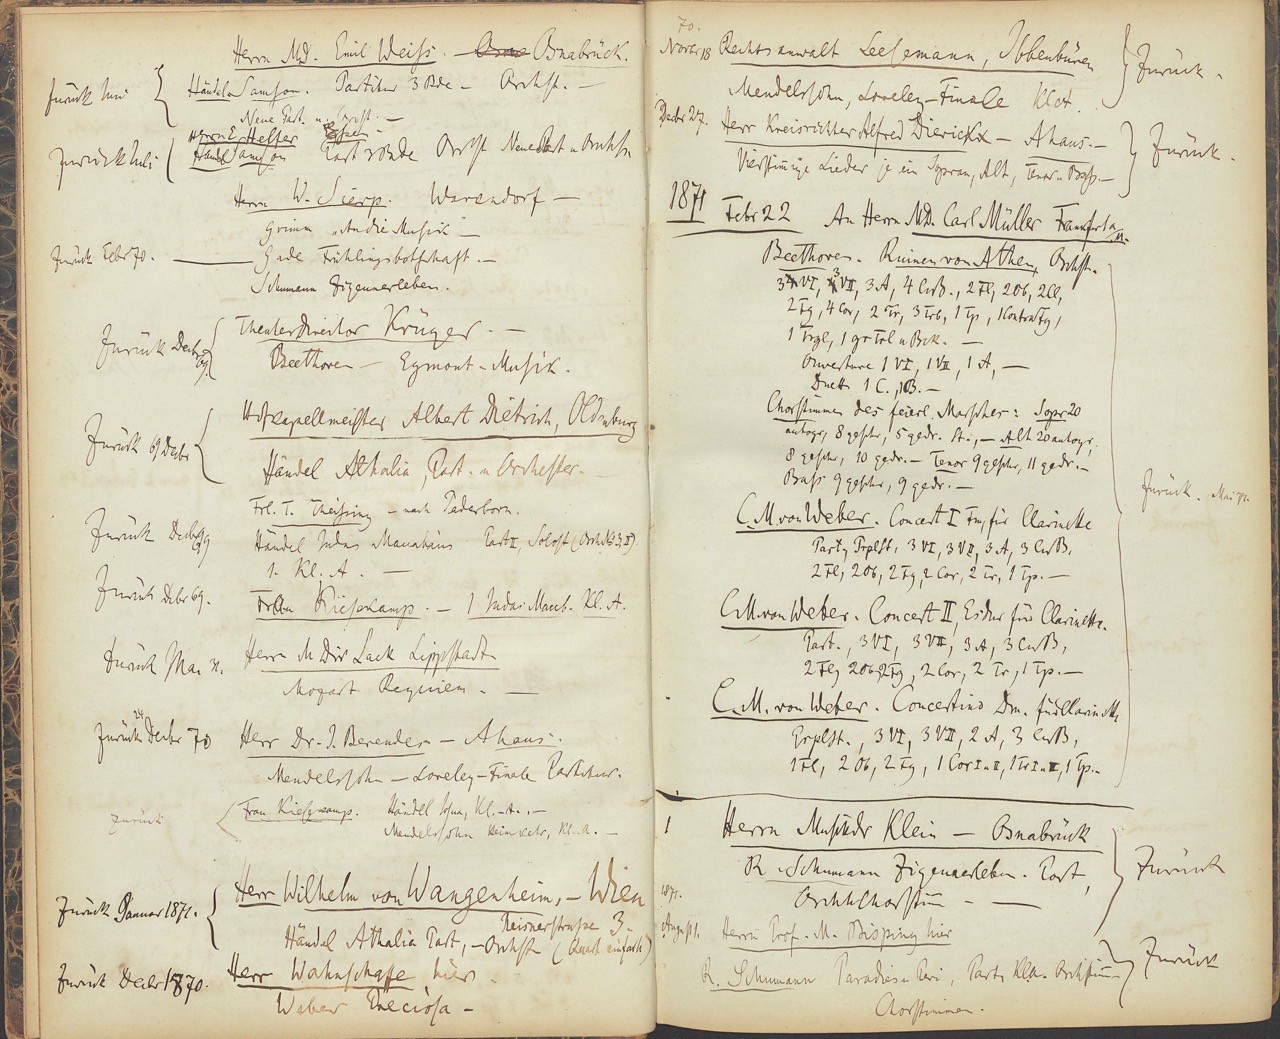 Herrn MD. Emil Weiss. — Osna Osnabrück.
Zurück Juni Händel Samson. Partitur 3 Bde — Orchst. —
Neue Part. u. Orchst. —
Herrn E. Helfer
Zurück Juli Händel Samson Part 3 Bde Orchst Neue Part u Orchst
Herrn W. Sierp. Warendorf —
Grimm "An die Musik —
Zurück Febr 70. Gade Frühlingsbotschaft. —
Schumann Zigeunerleben.
Theater Director Krüger. —
Zurück Decbr 69 Beethoven — Egmont-Musik.
Hofkapellmeister Albert Dietrich, Oldenburg
Zurück 69 Decbr
Händel Athalia, Part. u Orchester. —
Frl. T. Theissing — nach Paderborn.
Zurück Decbr 69 Händel Judas Maccabäus Part I, Solost
1. Kl. A. —
Zurück Debr 69. Frau Kiesekamp. — 1 Judas Maccb. Kl. A.
Zurück Mai Herrn M Dir Lack Lippstadt
Mozart Requiem. —
Zurück 24 Decbr 70 Herr Dr. J. Berendes — Ahaus.
Mendelssohn — Loreley-Finale Partitur.
zurück Frau Kiesekamp. Händel Kl. A. —
Mendelssohn Heimkehr, Kl. A. —
Herr Wilhelm von Wangenheim, — Wien
Zurück Januar 1871. Reisnerstrasse 3.
Händel Athalia Part, — Orchst (Quart einfach)
Zurück Decbr 1870. Herr Wahnschaffe hier.
Weber Preciosa —
70.
Novbr 18 Rechtsanwalt Leesemann, Ibbenbüren
Zurück.
Mendelssohn, Loreley-Finale KlA.
Decbr 27. Herr Kreisrichter Alfred Dierickx — Ahaus. —
Zurück.
Vierstimmige Lieder je ein Sopran, Alt, Tenor u Bass. —
1871 Febr 22 An Herrn MD. Carl Müller Frankfurt a/M.
Beethoven. Ruinen von Athen, Orchst.
3 VI, 3 VII, 3 A, 4 CuB., 2 Fl, 2 Ob, 2 Cl,
2 Fg, 4 Cor, 2 Tr, 3 Trb, 1 Tp, 1 Contra Fg,
1 Trgl, 1 gr Trl u Bck. —
Ouverture 1 VI, 1 VII, 1 A, —
Duett 1 C., 1 B. —
Chorstimmen des feierl. Marsches: Sopr 20
autogr, 8 geschr, 5 gedr. St., — Alt 20 autogr,
8 geschr, 10 gedr. — Tenor 9 geschr, 11 gedr. —
Bass 9 geschr, 9 gedr. —
Zurück. Mai 71.
C. M. von Weber. Concert I Fm, für Clarinette
Part, Prplst, 3 VI, 3 VII, 3 A, 3 CuB,
2 Fl, 2 Ob, 2 Fg, 2 Cor, 2 Tr, 1 Tp. —
C. M. von Weber. Concert II, Esdur für Clarinette.
Part., 3 VI, 3 VII, 3 A, 3 CuB,
2 Fl, 2 Ob, 2 Fg, 2 Cor, 2 Tr, 1 Tp. —
C. M. von Weber. Concertino Dm. für Clarinette
Prplst., 3 VI, 3 VII, 2 A, 3 CuB,
1 Fl, 2 Ob, 2 Fg, 1 Cor I u II, 1 Tr I u II, 1 Tp. —
1 Herrn Musikdr Klein — Osnabrück
R. Schumann Zigeunerleben. Part,
Zurück
Orchst Chorstim — —
1871.
August. Herrn Prof. M. Bisping hier
Zurück
R. Schumann Paradies u Peri, Part, Kl A. Orchstim —
Chorstimmen.